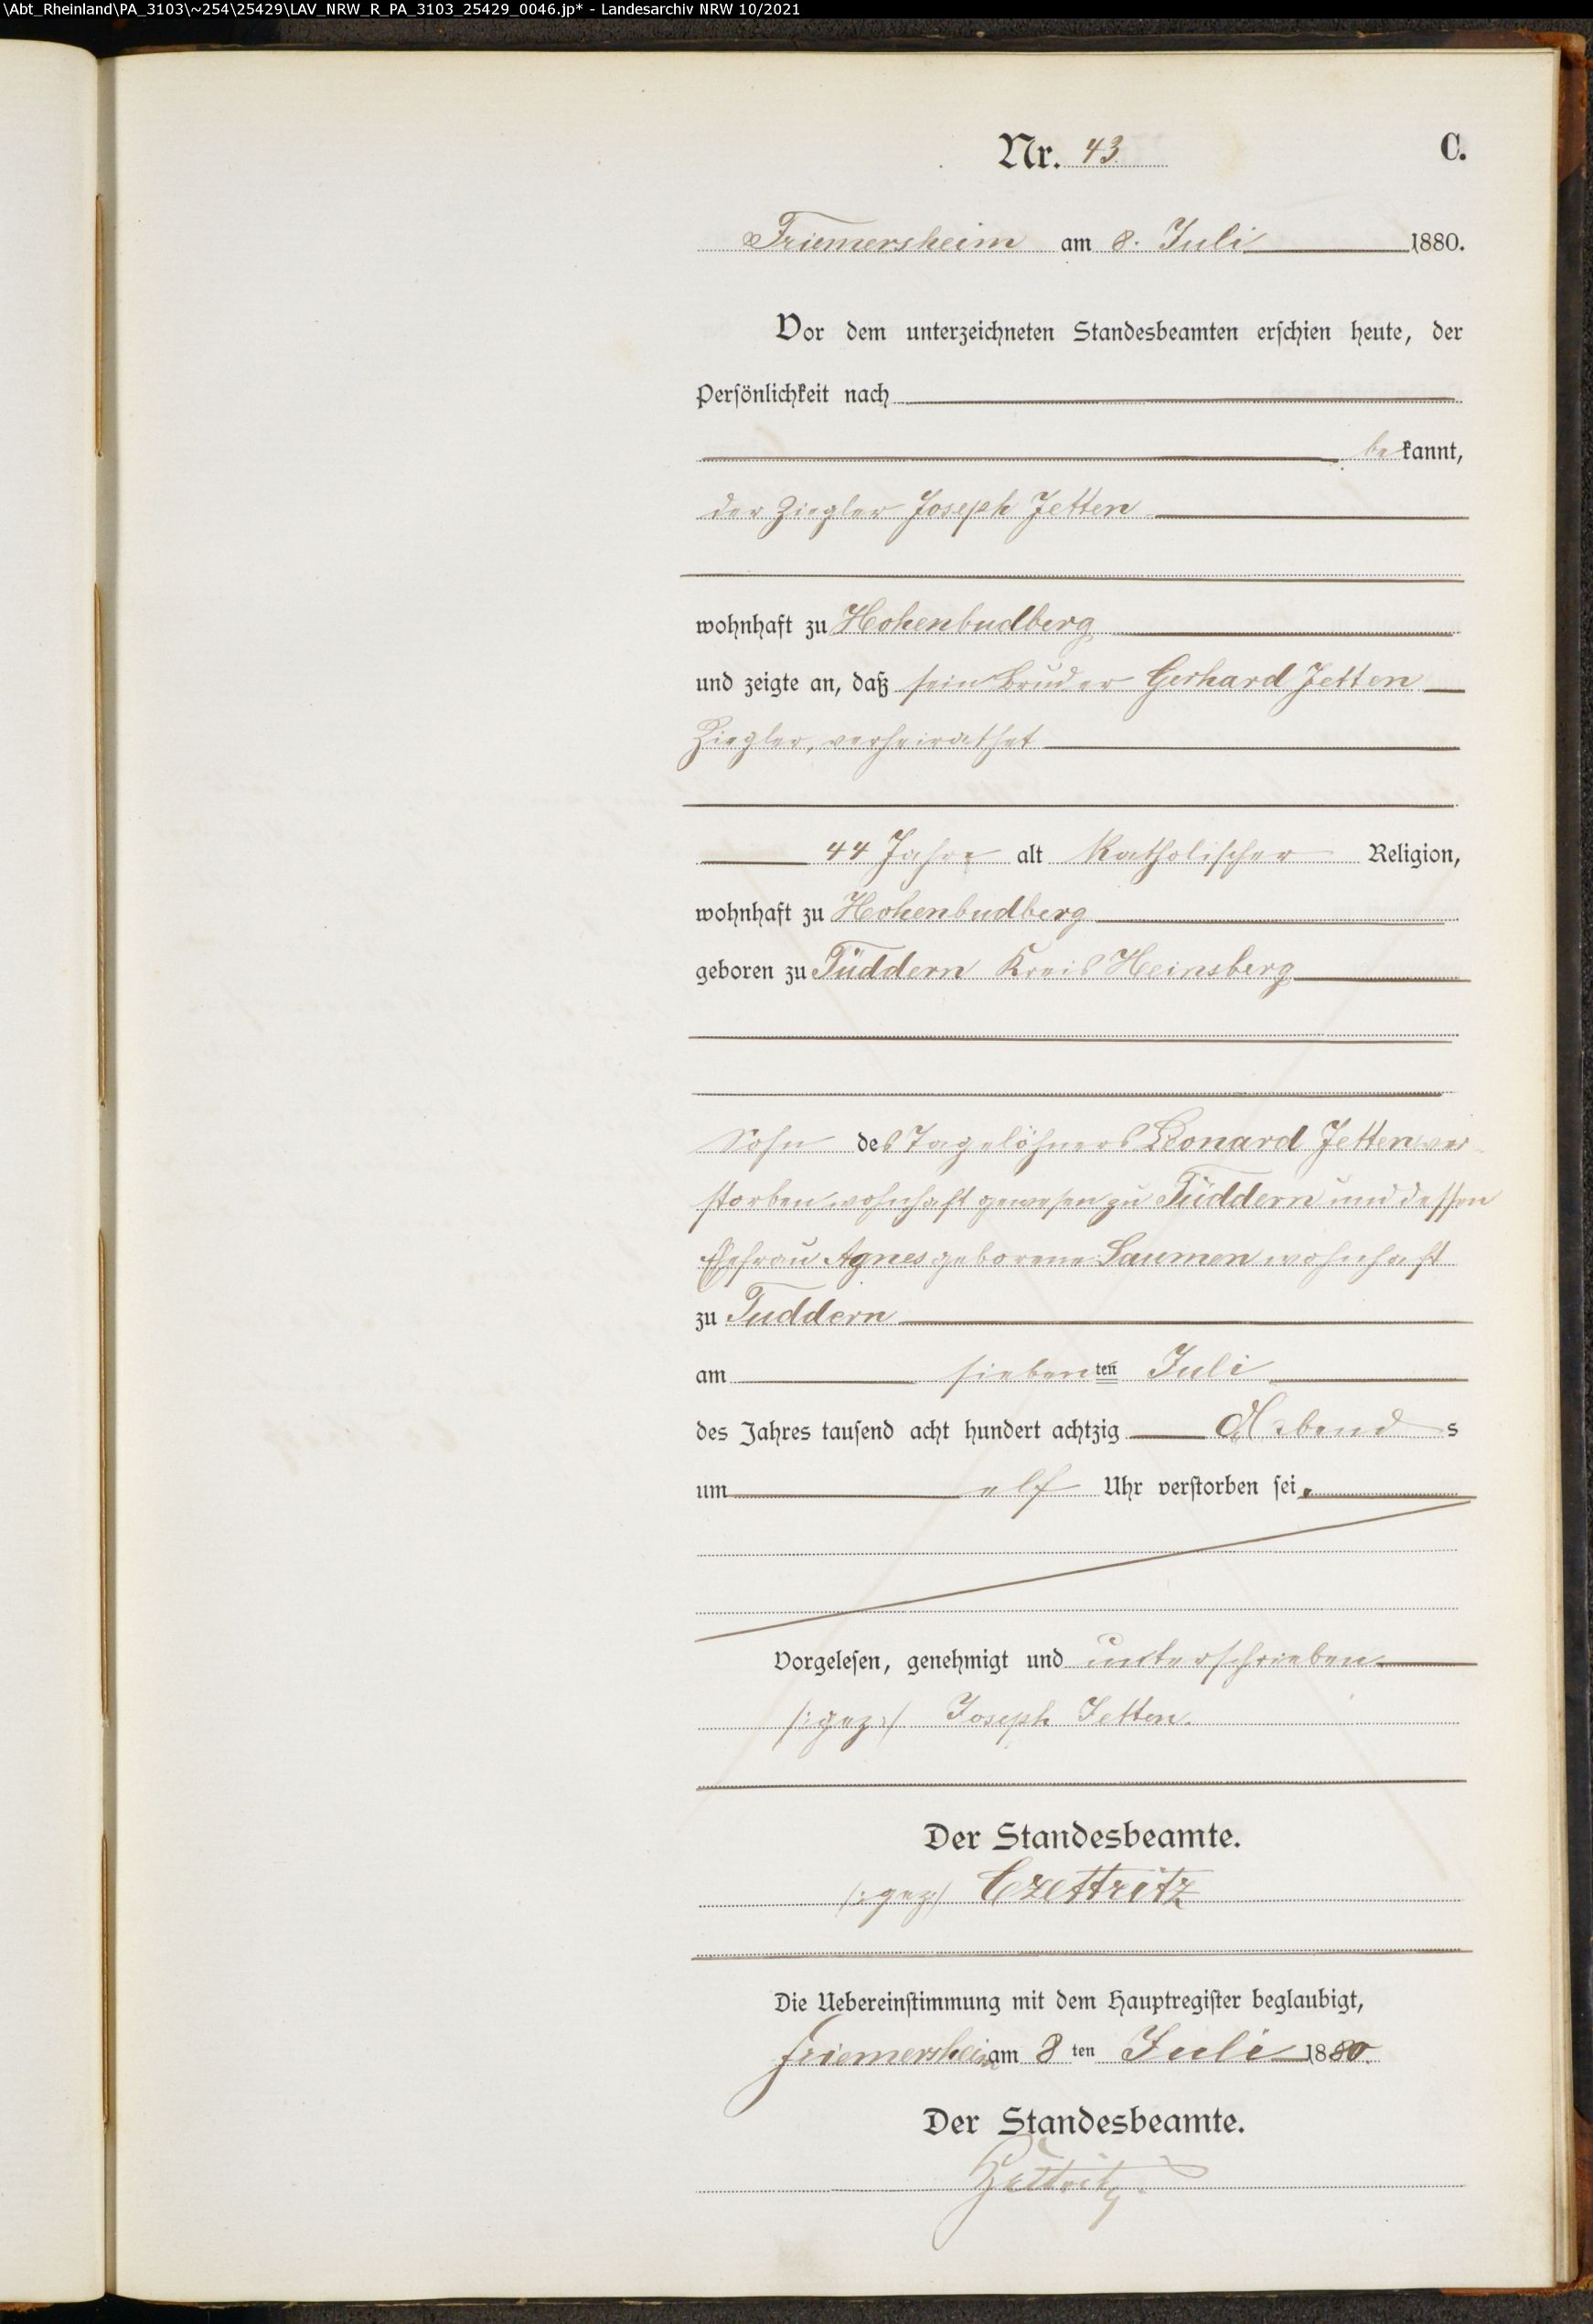 \Abt_Rheinland\PA_3103\~254\25429\LAV_NRW_R_PA_3103_25429_0046.jp* - Landesarchiv NRW 10/2021
Nr. 43
C.
Friemersheim am 8. Juli 1880.
Vor dem unterzeichneten Standesbeamten erschien heute, der
Persönlichkeit nach
bekannt,
der Ziegler Joseph Jetten
wohnhaft zu Hohenbudberg
und zeigte an, daß sein Bruder Gerhard Jetten
Ziegler, verheirathet
44 Jahre alt Katholischer Religion,
wohnhaft zu Hohenbudberg
geboren zu Tüddern Kreis Heinsberg
Sohn des Tagelöhners Leonard Jetten ver-
storben wohnhaft gewesen zu Tüddern und dessen
Ehefrau Agnes geborene Saumen wohnhaft
zu Tuddern
am siebenten Juli
des Jahres tausend acht hundert achtzig Abends
um elf Uhr verstorben sei.
Vorgelesen, genehmigt und unterschrieben
/:gez:/ Joseph Jetten.
Der Standesbeamte.
/:gez:/ Czettritz
Die Uebereinstimmung mit dem Hauptregister beglaubigt,
Friemersheim am 8ten Juli 1880.
Der Standesbeamte.
Czettritz